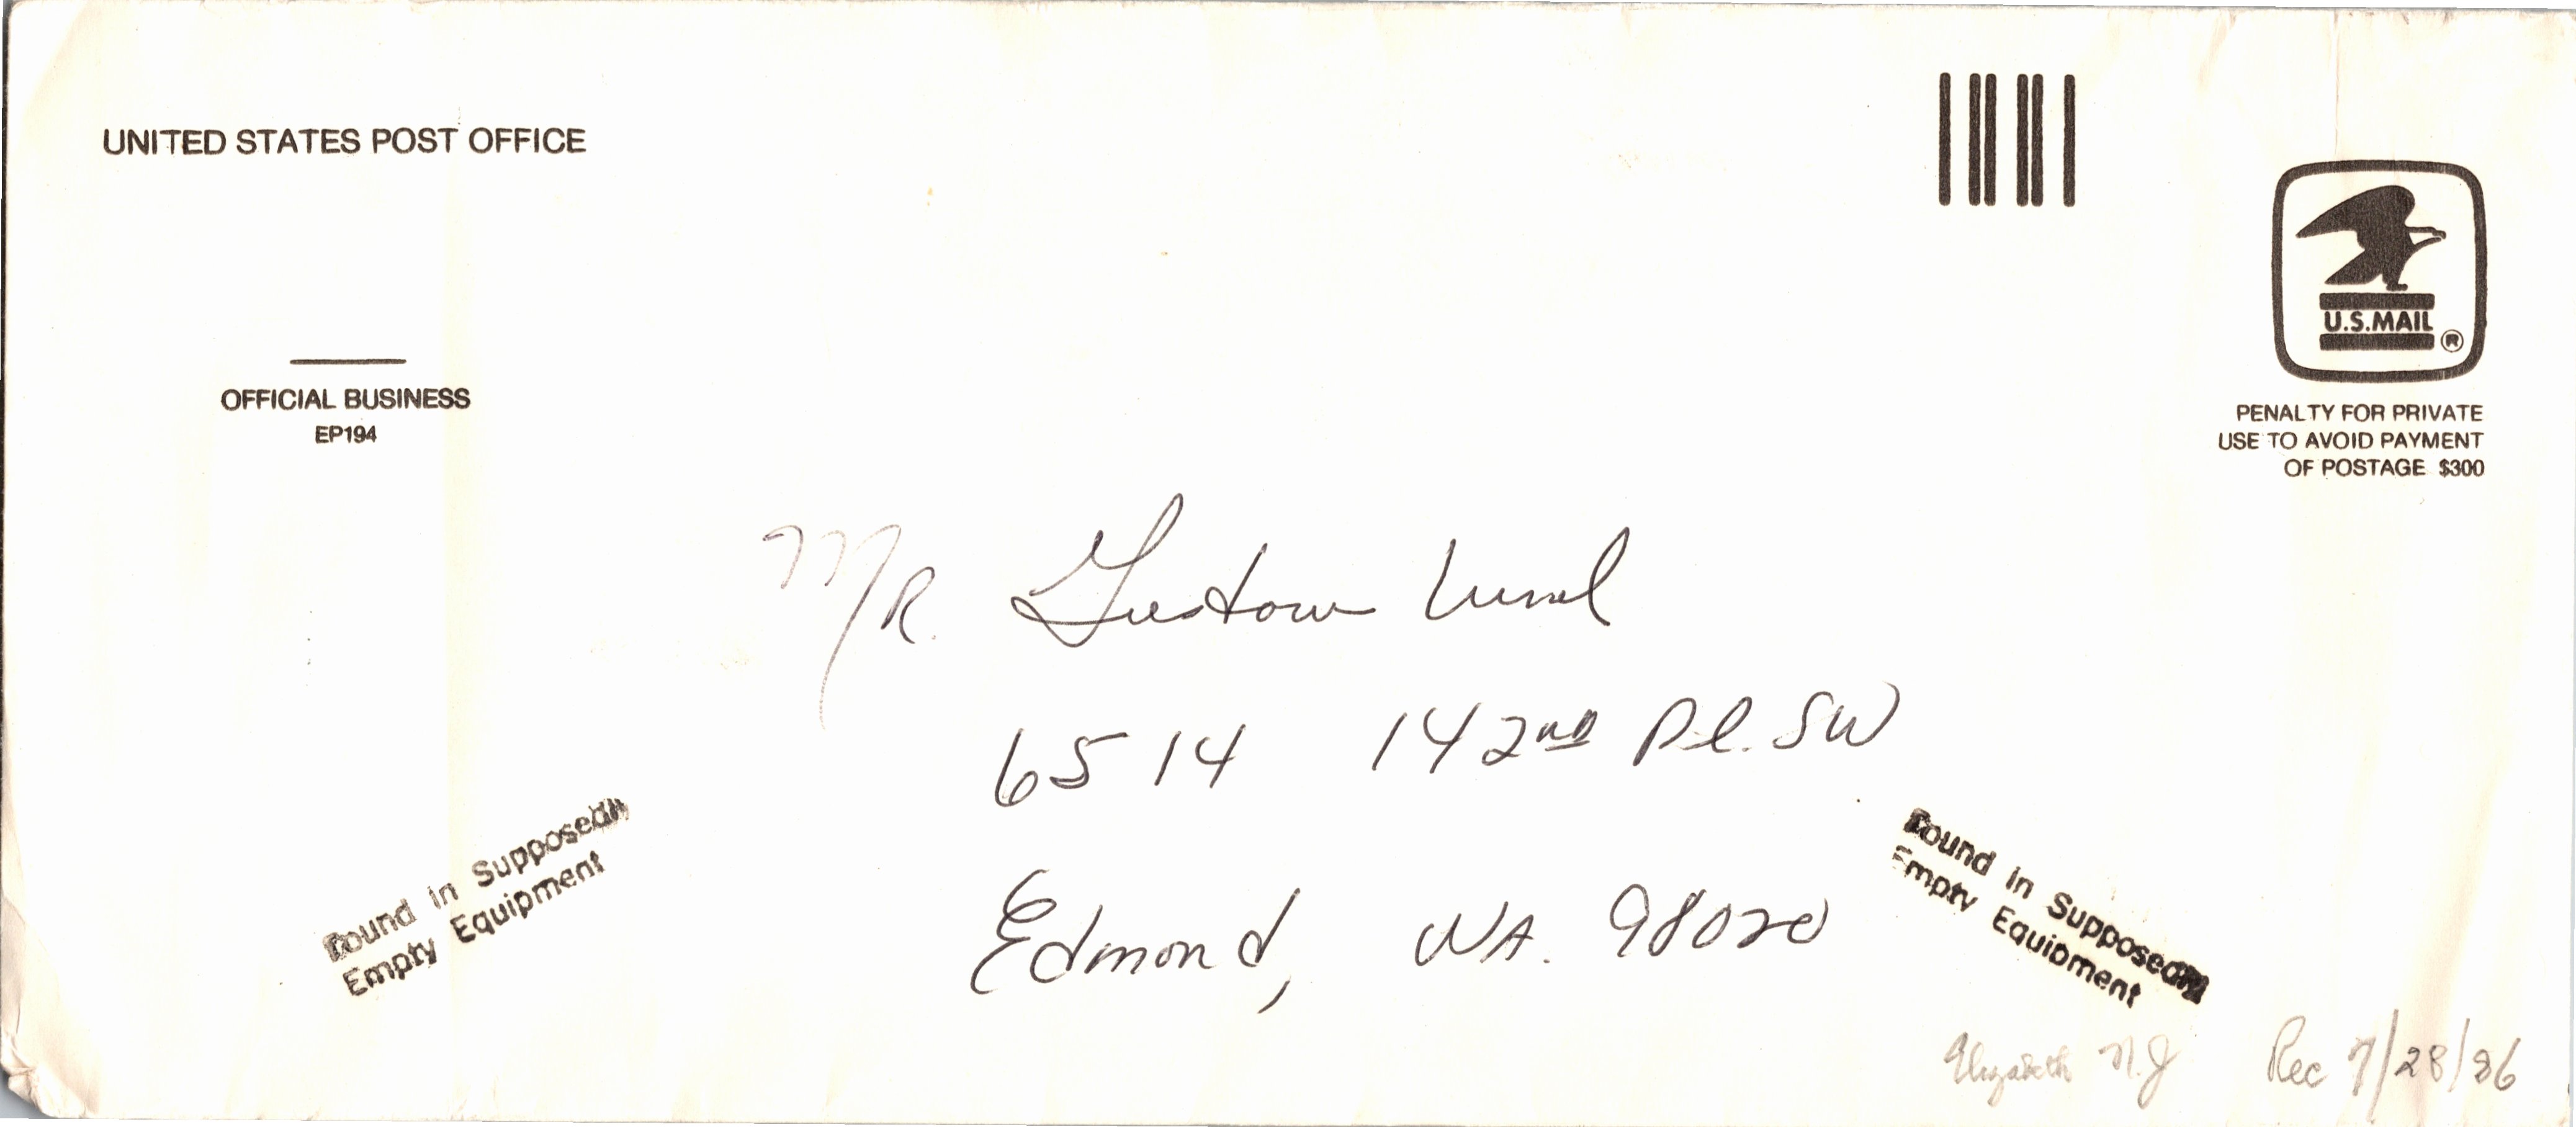 UNITED STATES POST OFFICE
OFFICIAL BUSINESS
EP194
U.S.MAIL ®
PENALTY FOR PRIVATE
USE TO AVOID PAYMENT
OF POSTAGE $300
MR. Gustow
6514 142nd Pl. SW
Edmond, WA. 98020
Found in Supposedly
Empty Equipment
Found in Supposedly
Empty Equipment
Elizabeth N.J
Rec 7/28/86